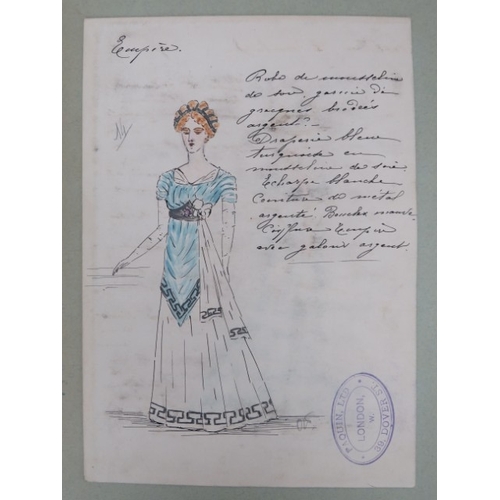 Empire.
Robe de mousseline
de soie garnie de
grecques brodées
argent. -
Draperie bleue
turquoise en
mousseline de soie
Echarpe blanche
Ceinture de métal
argenté. Boucles
Coiffure Empire
avec galons argent.
PAQUIN, LTD
LONDON,
W.
39, DOVER ST.